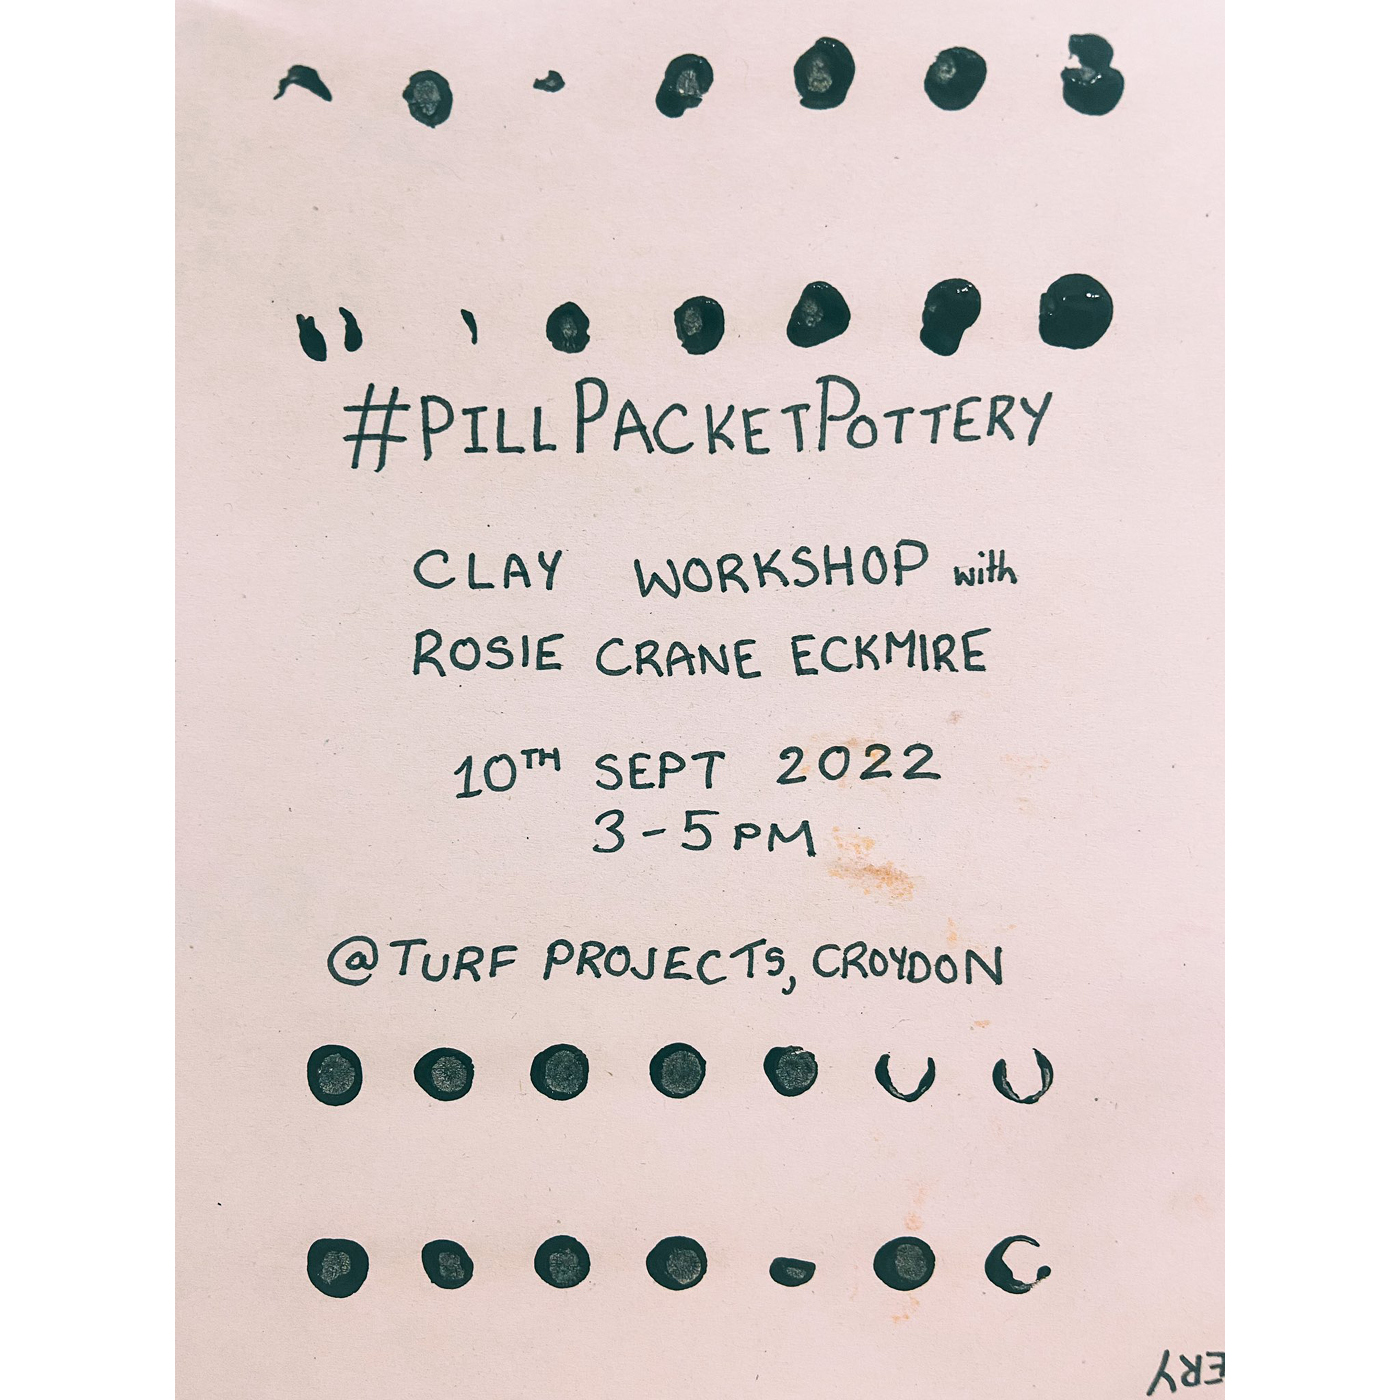 #PILLPACKETPOTTERY
CLAY WORKSHOP with
ROSIE CRANE ECKMIRE
10TH SEPT 2022
3-5PM
@TURF PROJECTS, CROYDON
ERY